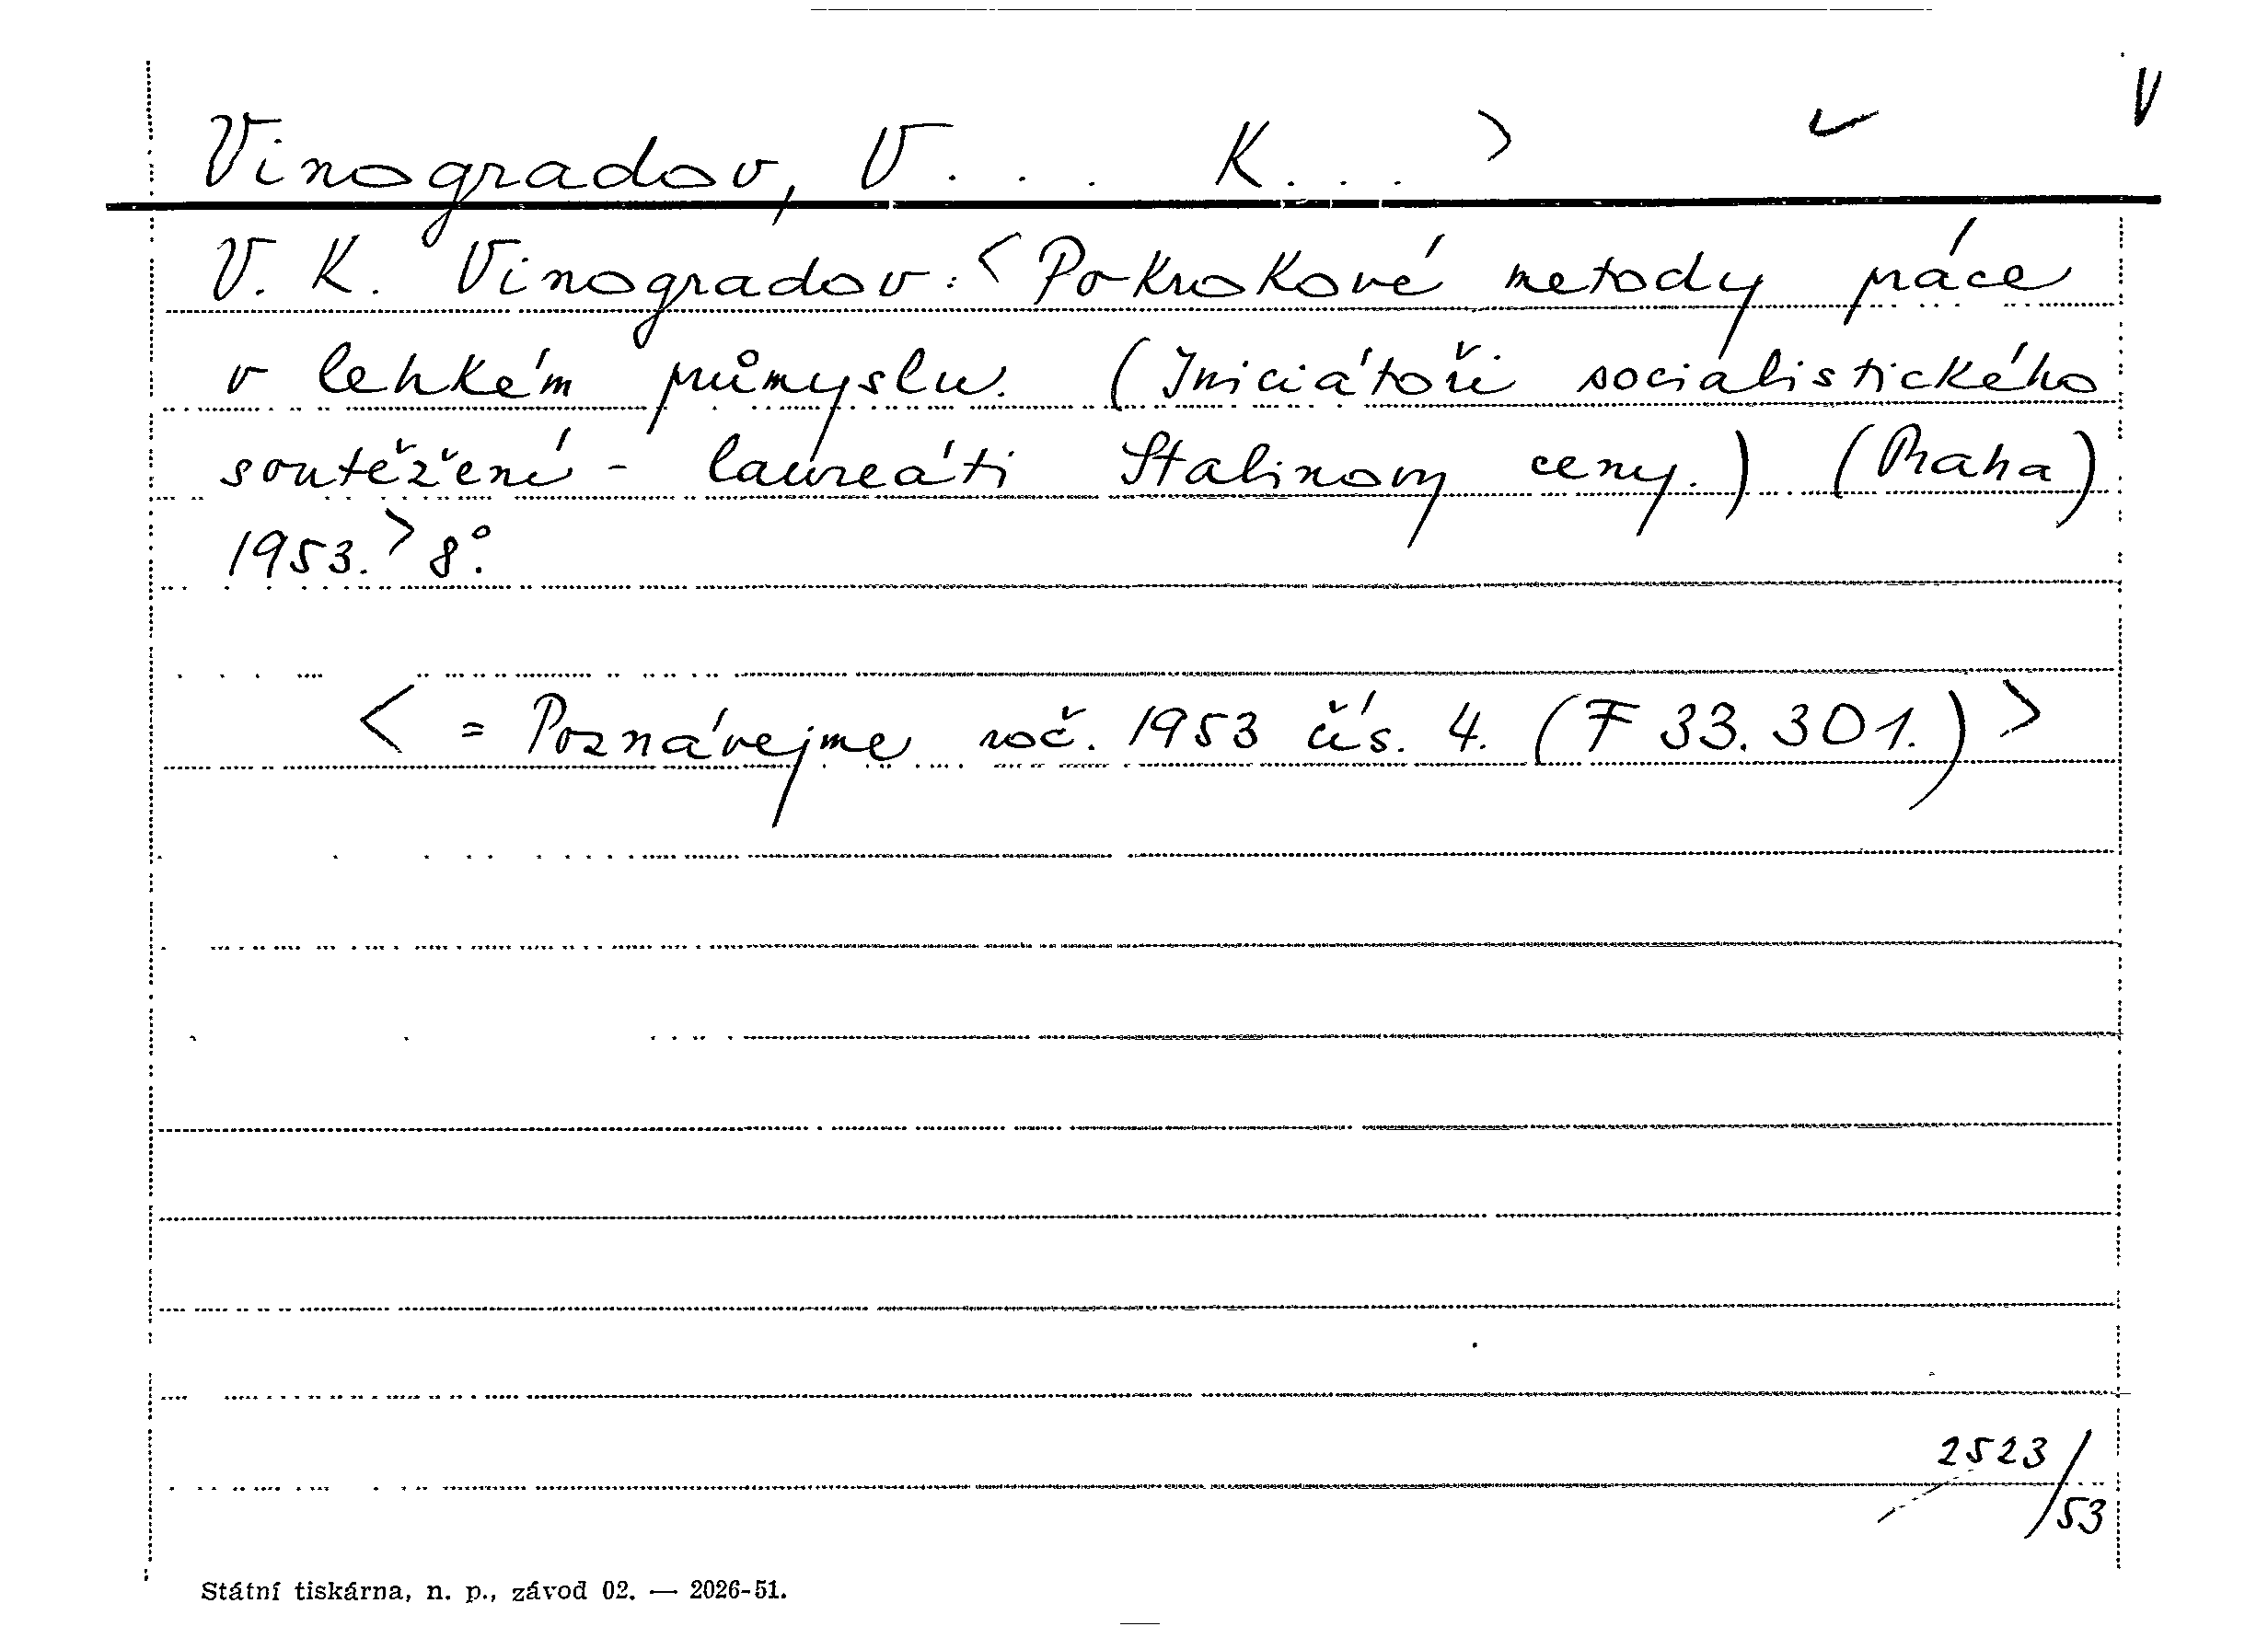 V
Vinogradov, V... K...>
V. K. Vinogradov: <Pokrokové metody práce
v lehkém průmyslu. (Iniciátoři socialistického
soutěžení - laureáti Stalinovy ceny.) (Praha)
1953.> 8°.
< = Poznávejme roč. 1953 čís. 4. (F 33.301.) >
2523/53
Státní tiskárna, n. p., závod 02. — 2026-51.